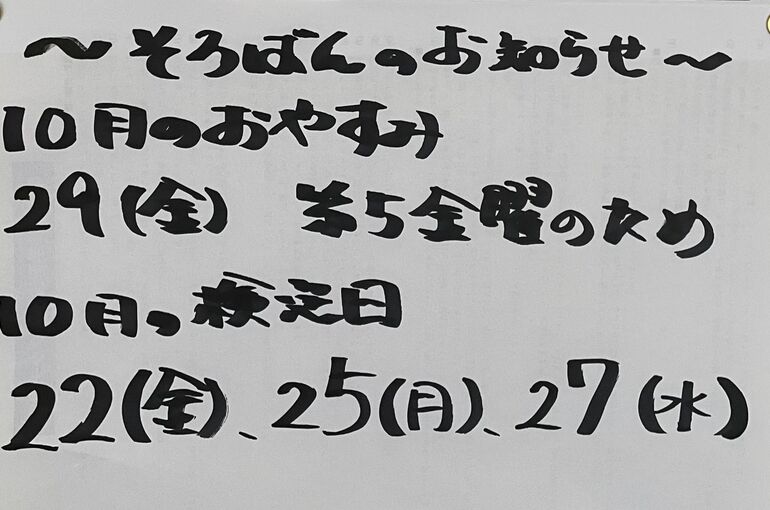 ～そろばんのお知らせ～
10月のおやすみ
29(金) 第5金曜のため
10月の検定日
22(金)、25(月)、27(水)